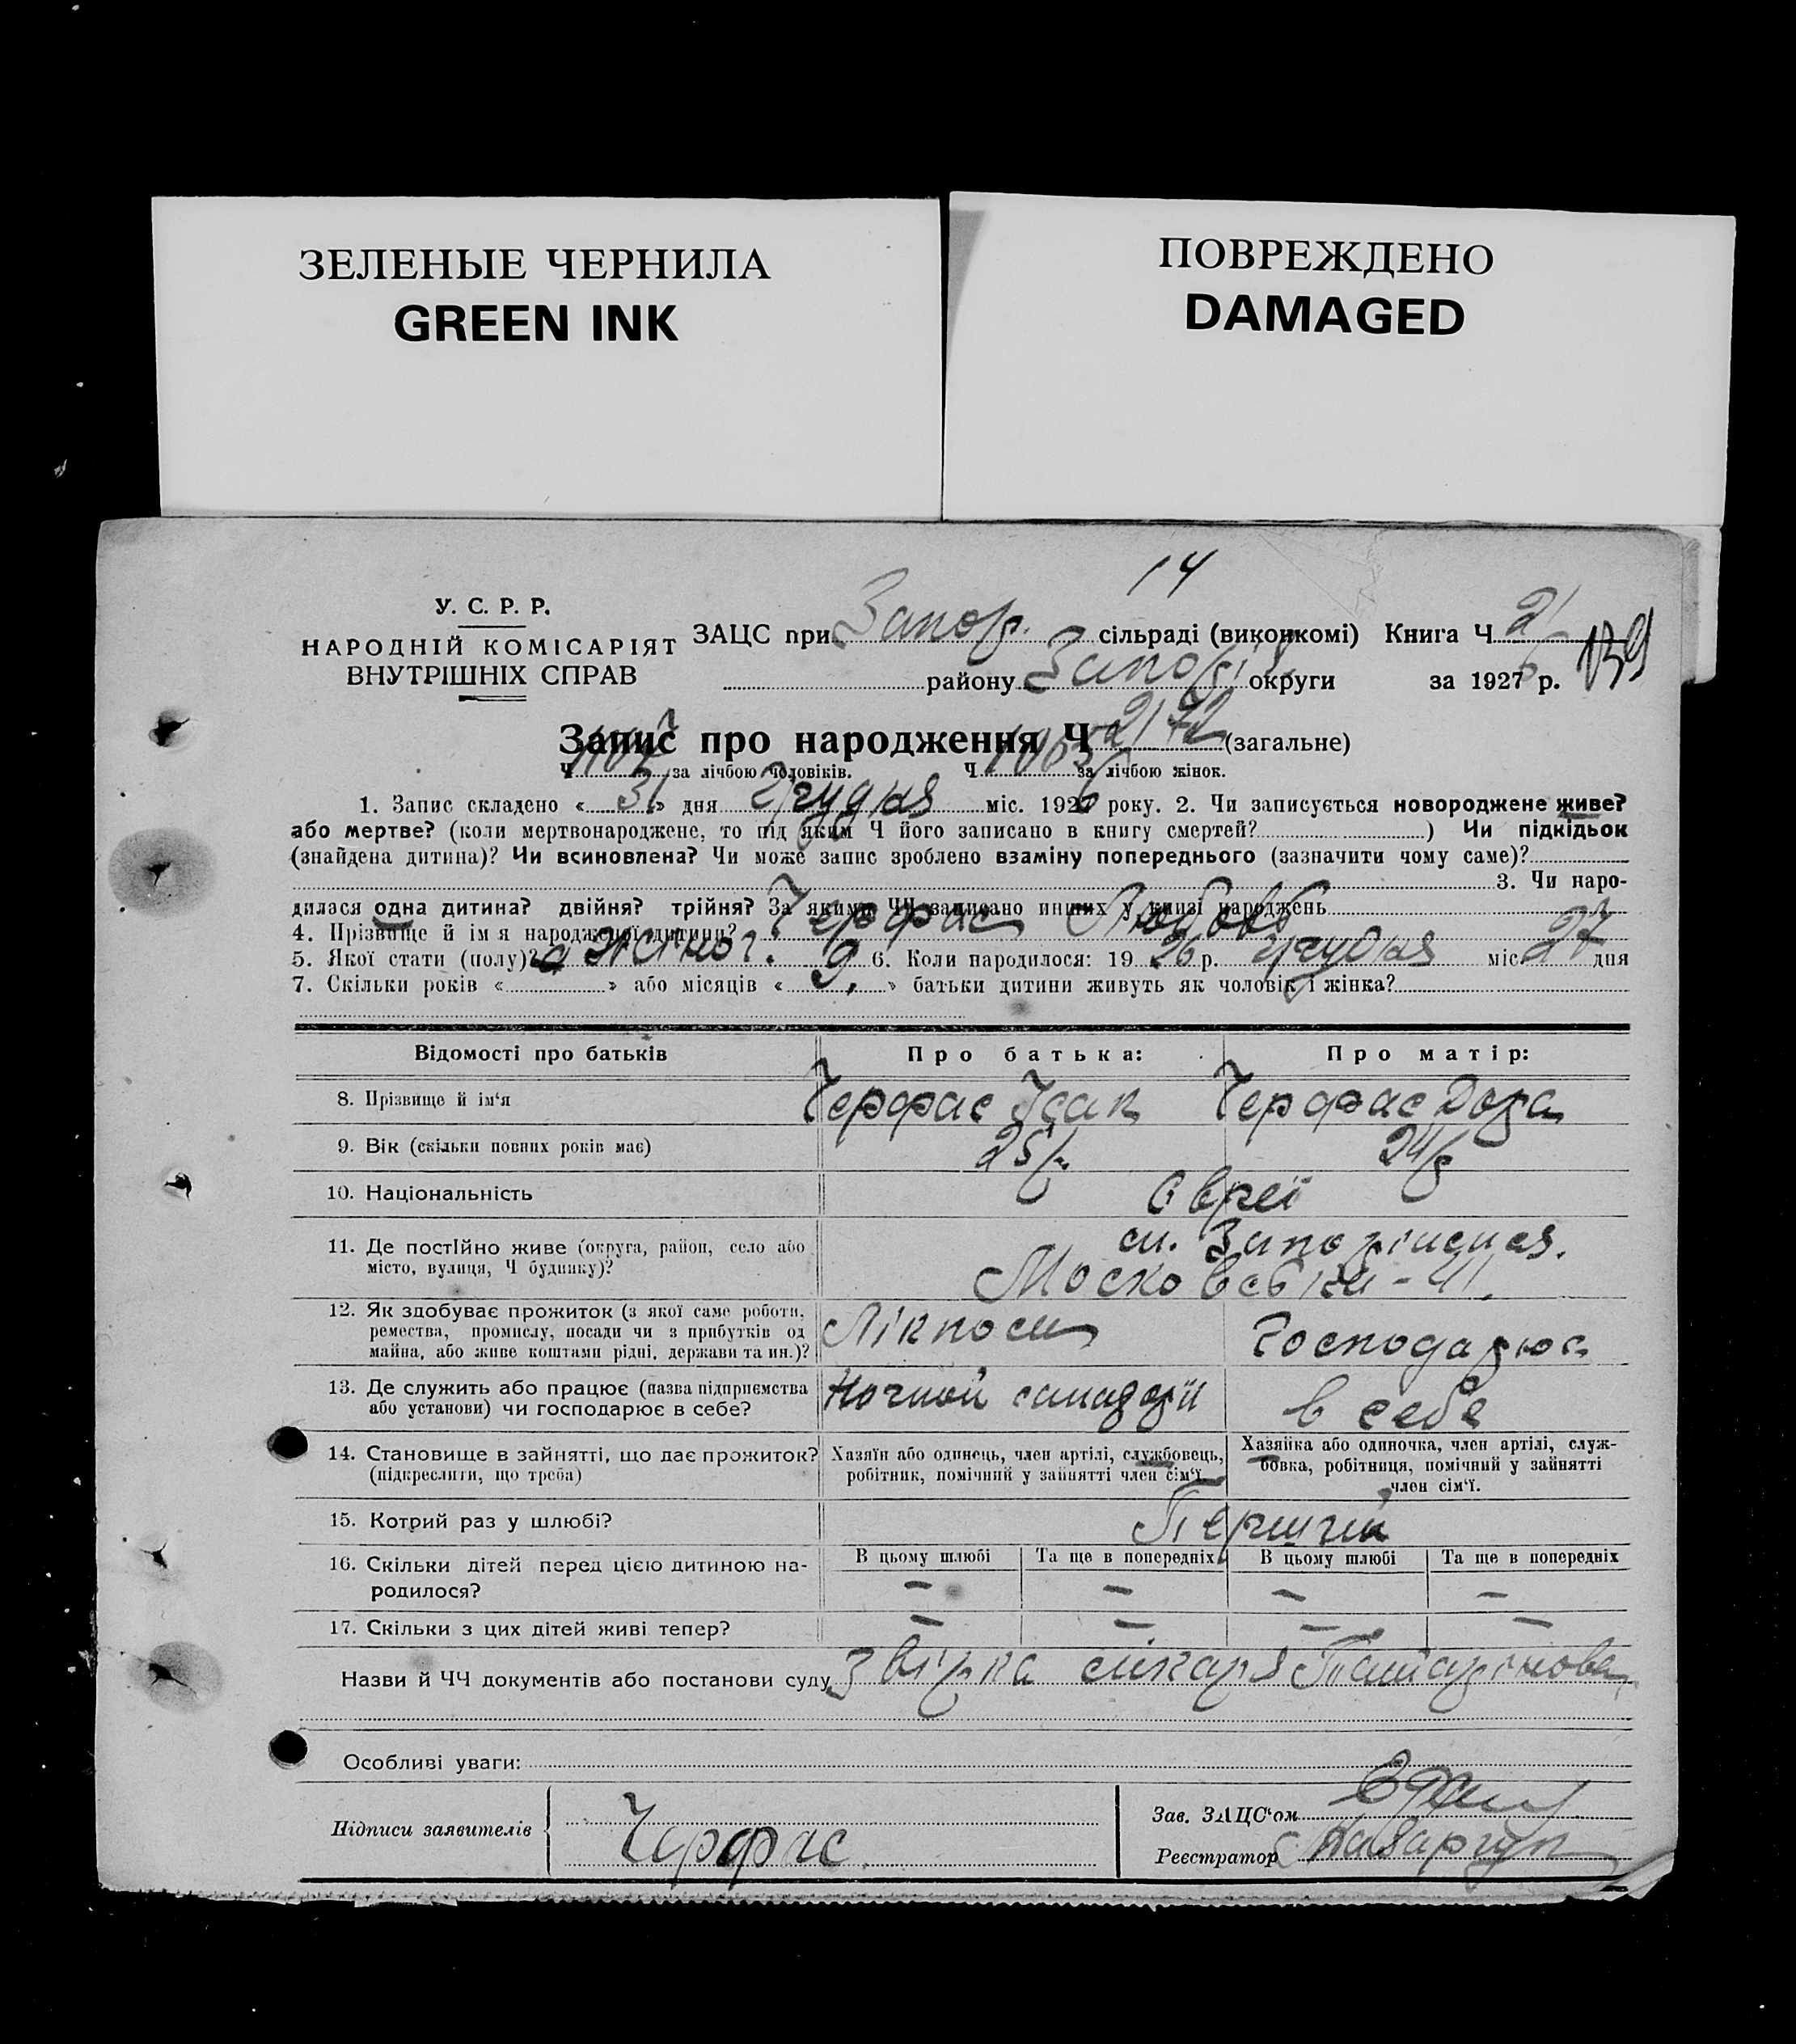 ЗЕЛЕНЫЕ ЧЕРНИЛА
GREEN INK
ПОВРЕЖДЕНО
DAMAGED
14
У. С. Р. Р.
НАРОДНІЙ КОМІСАРІЯТ
ВНУТРІШНІХ СПРАВ
ЗАЦС при Запор. сільраді (виконкомі) Книга Ч 21
139
району Запоріз округи за 1926 р.
Запис про народження Ч 2172 (загальне)
Ч 1107 за лічбою чоловіків. Ч 1065 за лічбою жінок.
1. Запис складено « 31 » дня Грудня міс. 1926 року. 2. Чи записується новороджене живе?
або мертве? (коли мертвонароджене, то під яким Ч його записано в книгу смертей? ) Чи підкідьок
(знайдена дитина)? Чи всиновлена? Чи може запис зроблено взаміну попереднього (зазначити чому саме)?
3. Чи наро-
дилася одна дитина? двійня? трійня? За якими ЧЧ записано инших у книзі народжень
4. Прізвище й ім'я народженої дитини? Черфас Любовь
5. Якої стати (полу)? жіноч. 6. Коли народилося: 19 26 р. Грудня міс. 27 дня
7. Скільки років « » або місяців « 9. » батьки дитини живуть як чоловік і жінка?
Відомості про батьків
Про батька:
Про матір:
8. Прізвище й ім'я
Черфас Ісак
Черфас Доза
9. Вік (скільки повних років має)
25
24
10. Національність
євреї
11. Де постІйно живе (округа, район, село або
місто, вулиця, Ч будинку)?
м. Запоріжжя.
Московська - 41.
12. Як здобуває прожиток (з якої саме роботи,
ремества, промислу, посади чи з прибутків од
майна, або живе коштами рідні, держави та ин.)?
Лікпом
Господарює
13. Де служить або працює (назва підприємства
або установи) чи господарює в себе?
Ночной санаторії
в себе
14. Становище в зайнятті, що дає прожиток?
(підкреслити, що треба)
Хазяїн або одинець, член артілі, службовець,
робітник, помічний у зайнятті член сім'ї.
Хазяйка або одиночка, член артілі, служ-
бовка, робітниця, помічний у зайнятті
член сім'ї.
15. Котрий раз у шлюбі?
Перший
16. Скільки дітей перед цією дитиною на-
родилося?
В цьому шлюбі
Та ще в попередніх
В цьому шлюбі
Та ще в попередніх
— — — —
17. Скільки з цих дітей живі тепер?
— — — —
Назви й ЧЧ документів або постанови суду
Звірка лікаря
Особливі уваги:
Підписи заявителів
Черфас
Зав. ЗАЦС'ом
Реєстратор